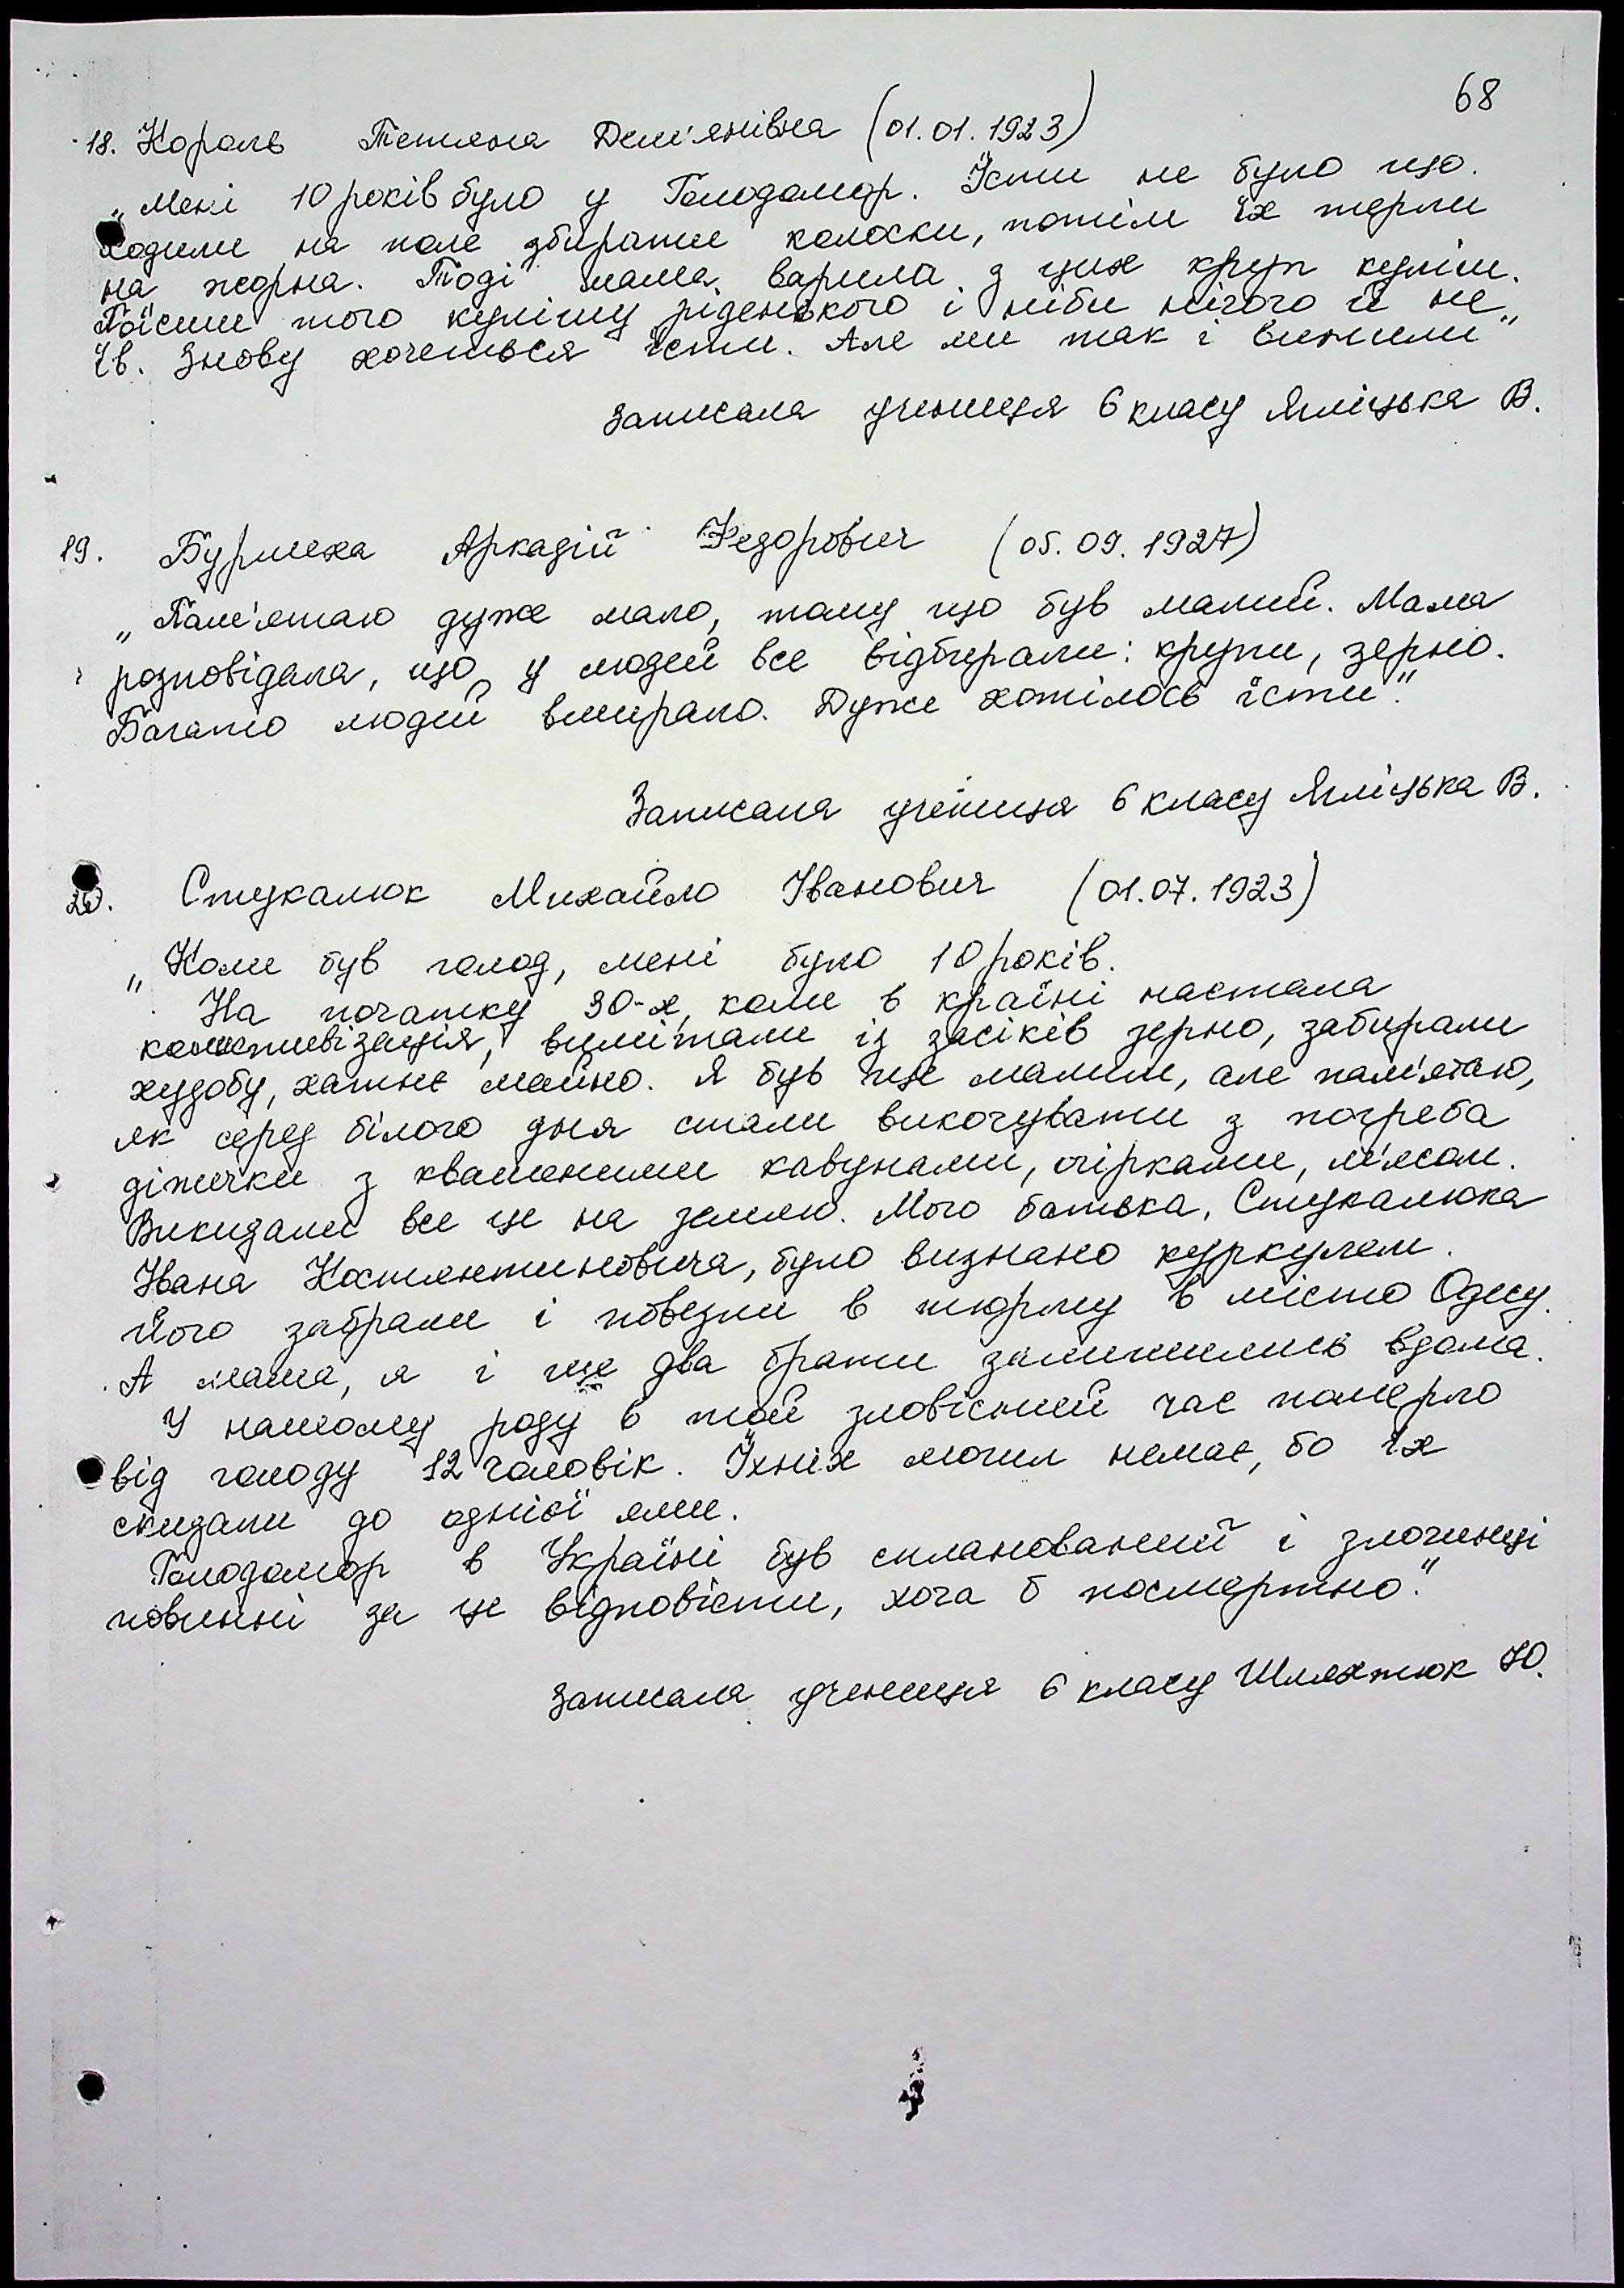 68
18. Король Тетяна Дем'янівна (01.01.1923)
„Мені 10 років було у Голодомор. Їсти не було що.
Ходили на поле збирати колоски, потім їх терли
на жорна. Тоді мама варила з цих круп куліш.
Поїсиш того кулішу ріденького і ніби нічого й не
їв. Знову хочеться їсти. Але ми так і вижили"
Записала учениця 6 класу Ямліцька В.
19. Бурлиха Аркадій Федорович (05.09.1927)
„Пам'ятаю дуже мало, тому що був малий. Мама
розповідала, що у людей все відбирали: крупи, зерно.
Багато людей вмирало. Дуже хотілось їсти".
Записала учениця 6 класу Ямліцька В.
20. Стукалюк Михайло Іванович (01.07.1923)
„Коли був голод, мені було 10 років.
На початку 30-х, коли в країні настала
колективізація, вимітали із засіків зерно, забирали
худобу, хатнє майно. Я був ще малим, але пам'ятаю,
як серед білого дня стали викочувати з погреба
діжечки з квашеними кавунами, огірками, м'ясом.
Викидали все це на землю. Мого батька, Стукалюка
Івана Костянтиновича, було визнано куркулем.
Його забрали і повезли в тюрму в місто Одесу.
А мама, я і ще два брати залишились вдома.
У нашому роду в той зловісний час померло
від голоду 12 чоловік. Їхніх могил немає, бо їх
скидали до однієї ями.
Голодомор в Україні був спланований і злочинці
повинні за це відповісти, хоча б посмертно."
Записала учениця 6 класу Шляхтюк Ю.